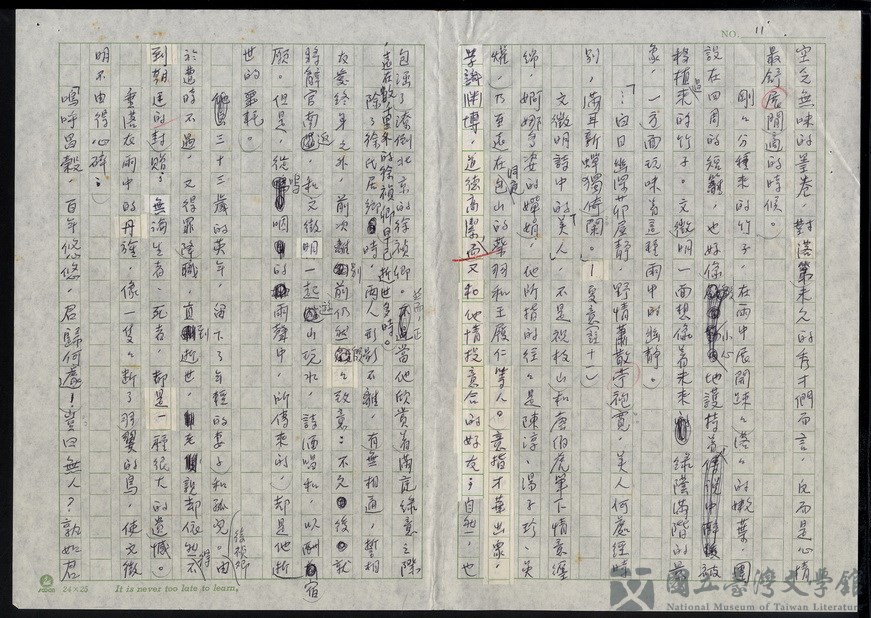 NO. 11
空乏無味的墨卷，對落第未久的秀才們而言，反而是心情
最舒展開高的時候。
剛剛分種來的竹子，在雨中展開疎疎落落的嫩葉，圍
設在四周的短籬，也好像小心地護持著被
移植來的竹子。文徵明一面想像著未來綠蔭滿階的
象，一方面玩味着這種雨中的幽靜。
「白日幽深茆屋靜，野情蕭散苧袍寬，美人何處經時
別，滿耳新蟬獨倚闌。」—夏意註十一
文徵明詩中的「美人」，不是祝枝山和唐伯虎筆下情意纏
綿，婀娜多姿的嬋娟。他所指的往往是陳淳、湯子珍、吳
爟，乃至遠在洞庭包山的蔡羽和王履仁等人。意指才華出眾，
學識淵博，道德高潔而又和他情投意合的好友；自然，也
包涵了潦倒北京的徐禎卿。當他欣賞着滿庭綠意之際
，遠在數里外的徐禎卿早已逝世多時。
除了徐氏居鄉時，兩人形影不離，有無相通，誓相
友愛終身之外，前次離別前仍然致意：不久後就
辭官南返，和文徵明一起遊山玩水，詩酒唱和，以酬宿
願。但是，從嗚咽的雨聲中，所傳來的，却是他逝
世的噩耗。
三十三歲的英年，留下了年輕的妻子和孤兒。由
於遭時不遇，又得罪降職，直到逝世，
到朝廷的封贈；無論生者、死者，都是一種很大的遺憾。
垂落在雨中的丹旐，像一隻斷了羽翼的鳥，使文徵
明不由得心碎：
嗚呼昌穀，百年悠悠，君歸何處！豈曰無人？孰如君
24×25
It is never too late to learn.
國立臺灣文學館
National Museum of Taiwan Literature